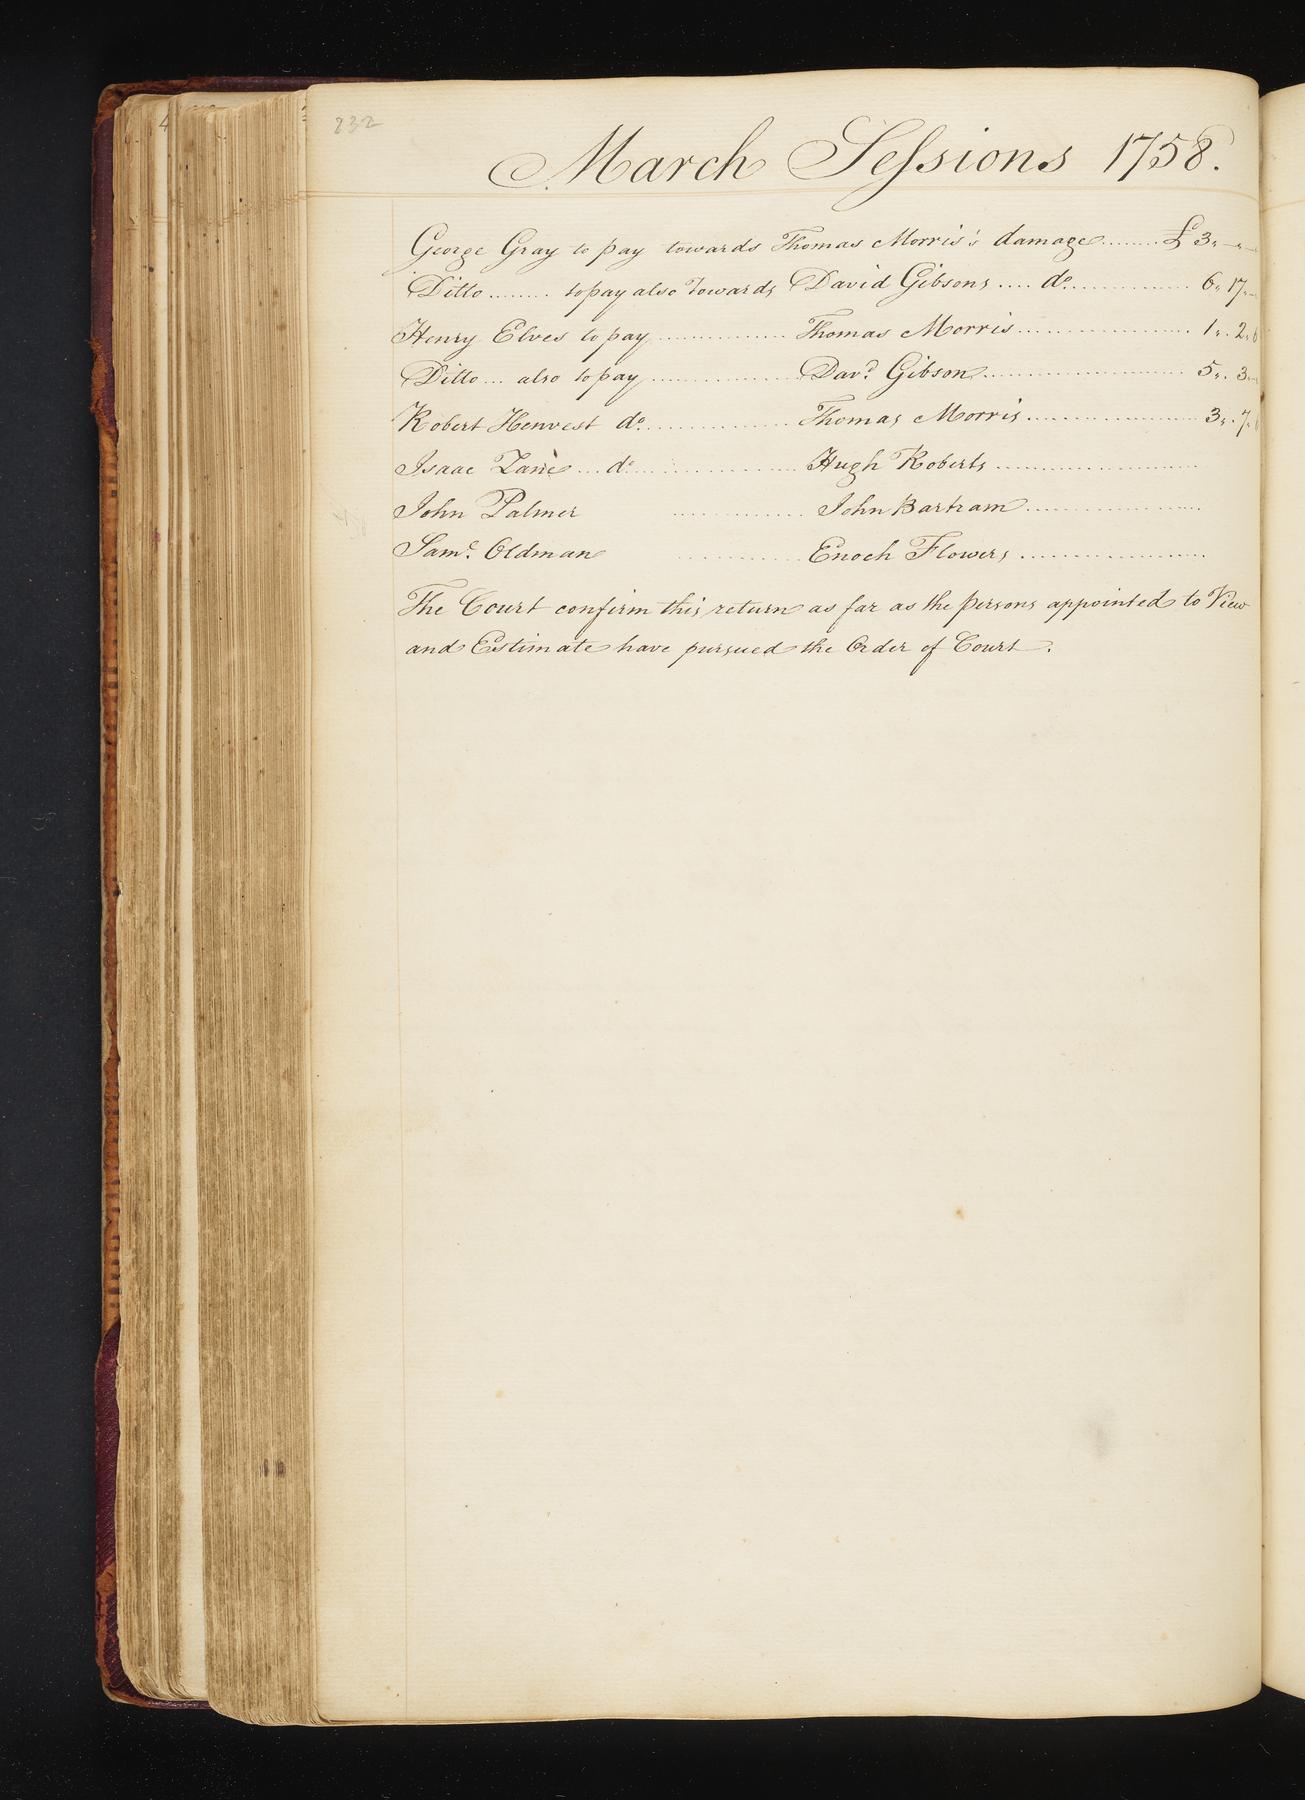 232
March Sessions 1758.
George Gray to pay towards Thomas Morris's damage........£ 3,,—,,—
Ditto........ to pay also Towards David Gibsons.... do............... 6,, 17,,—
Henry Elves to pay............... Thomas Morris..................... 1,,. 2,, 6
Ditto... also to pay.................. Davd. Gibson......................... 5,,. 3,,—
Robert Henvest do................ Thomas Morris..................... 3,,. 7,, 6
Isaac Zane... do.................. Hugh Roberts........................
John Palmer ............... John Bartram.....................
Saml. Oldman ............... Enoch Flowers......................
The Court confirm this return as far as the persons appointed to View
and Estimate have pursued the Order of Court.